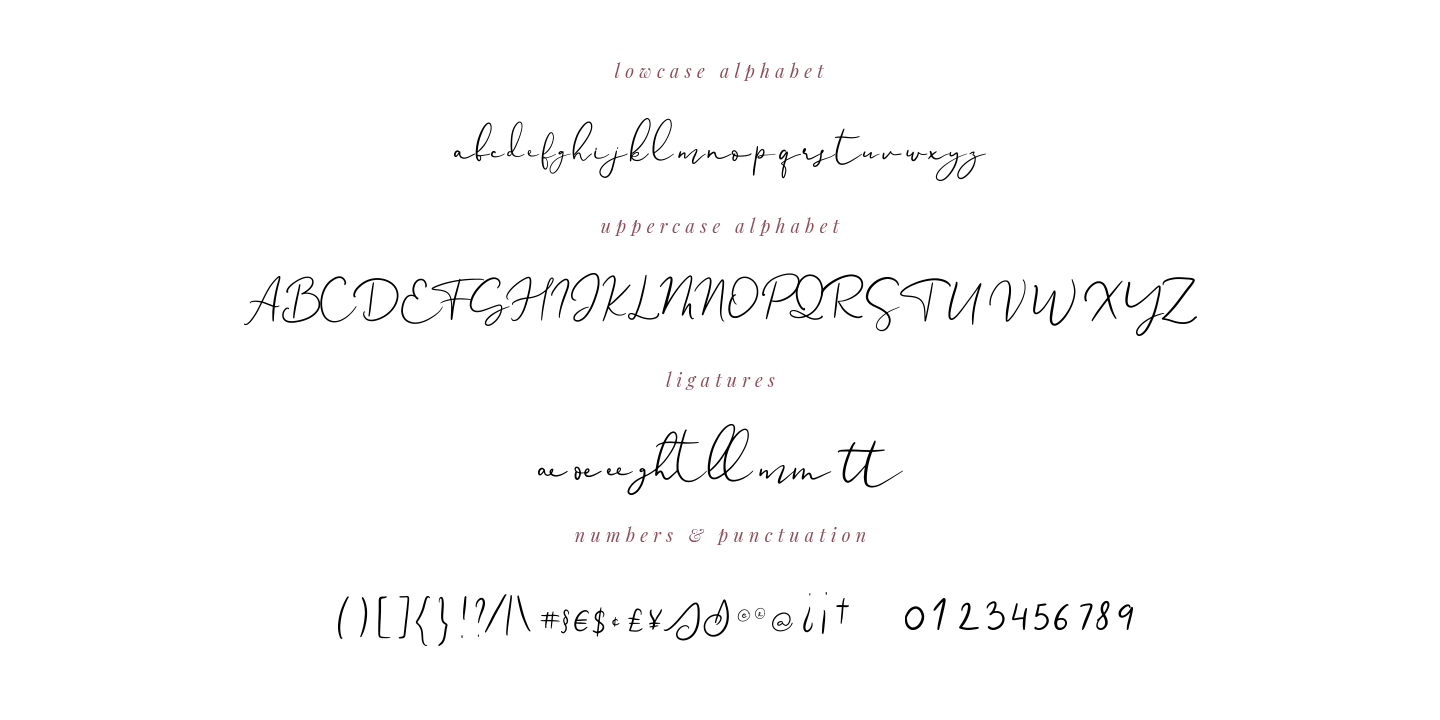 lowcase alphabet
abcdefghijklmnopqrstuvwxyz
uppercase alphabet
ABCDEFGHIJKLMNOPQRSTUVWXYZ
ligatures
ae oe ee ght ll mm tt
numbers & punctuation
()[]{}!?/|\#§€$¢£¥ @¿¡† 0123456789